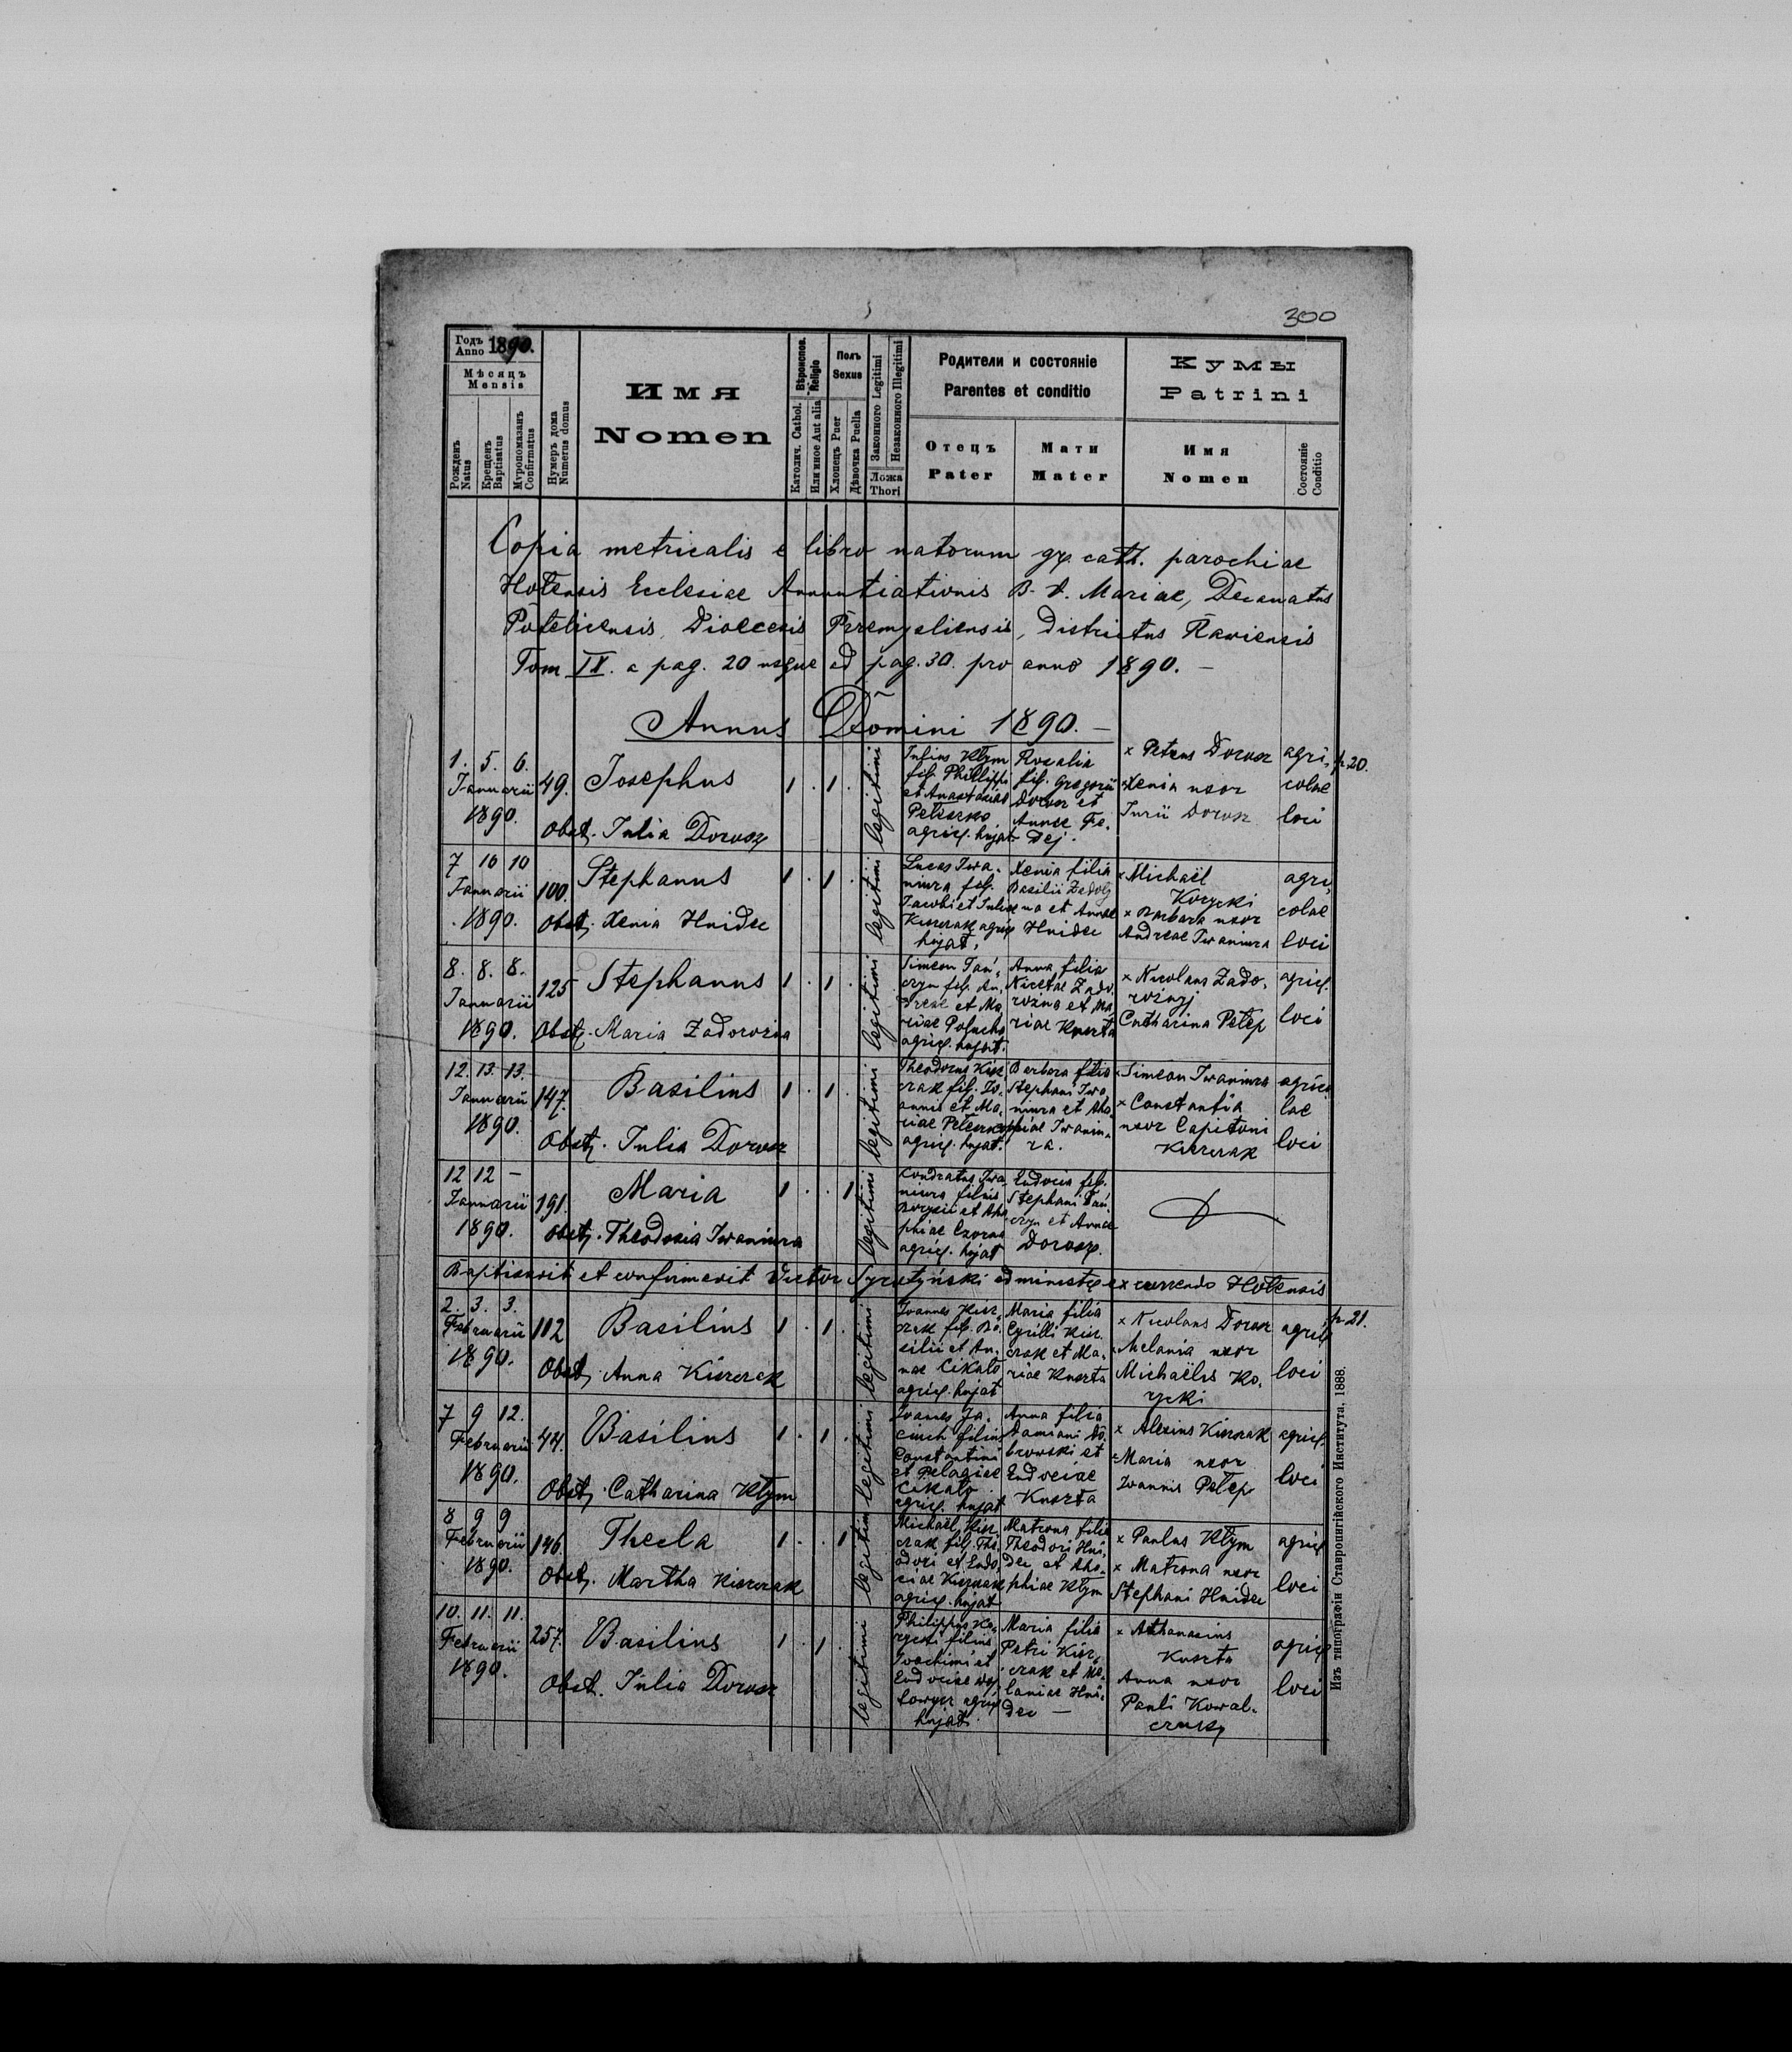 300
Годъ Anno 1890.
Мѣсяцъ
Mensis
Рожденъ Natus
Крещенъ Baptisatus
Мѵропомазанъ Confirmatus
Нумеръ дома Numerus domus
Имя
Nomen
Вѣроиспов. Religio
Католич. Cathol.
Или иное Aut alia
Полъ
Sexus
Хлопецъ Puer
Дѣвочка Puella
Законного Legitimi
Незаконного Illegitimi
Ложа
Thori
Родители и состояніе
Parentes et conditio
Отецъ
Pater
Мати
Mater
Кумы
Patrini
Имя
Nomen
Состояніе
Conditio
Copia metricalis e libro natorum gr. cath. parochiae
Hotensis Ecclesiae Annuntiationis B. V. Mariae, Decanatus
Potelicensis, Dioecesis Premysliensis, districtus Raviensis
Tom IX. a pag. 20 usque ad pag. 30. pro anno 1890. —
Annus Domini 1890. —
1. 5. 6. Januarii 1890.
49. Josephus 1 . 1 .
Obst. Julia Dorosz
legitimi
Julius Kłym
fil. Philippi
et Anastasiae
Peteczko
agric. hujat.
Rosalia
fil. Gregorii
Dorosz et
Annae Fe,
dej.
x Petrus Dorosz
x Xenia uxor
Jurii Dorosz
agri,
colae
loci
p. 20.
7 10 10 Januarii 1890.
100. Stephanus 1 . 1 .
Obst. Xenia Hnidec
legitimi
Lucas Iwa,
niura fil.
Jacobi et Juliae
Kiszczak agric
hujat.
Xenia filia
Basilii
et Annae
Hnidec
x Michaël
Korycki
x Barbara uxor
Andreae Iwaniura
agri,
colae
loci
8. 8. 8. Januarii 1890.
125 Stephanus 1 . 1 .
Obst. Maria Zadorożna
legitimi
Simeon Tań,
czyn fil. An,
dreae et Ma,
riae
agric. hujat.
Anna filia
Nicetae Zado,
rożna et Ma,
riae Kuszta
x Nicolaus Zado,
rożnyj
Catharina Petep
agric.
loci
12. 13. 13. Januarii 1890.
147. Basilius 1 . 1 .
Obst. Julia Dorosz
legitimi
Theodorus Kisz
czak fil. Jo,
annis et Ma,
riae Peteczko
agric. hujat.
Barbara filia
Stephani Iwa
niura et Aha,
phiae Iwaniu,
ra.
x Simeon Iwaniura
x Constantia
uxor Capitoni
Kiszczak
agrico
lae
loci
12 12 — Januarii 1890.
191. Maria 1 . . 1
Obst. Theodosia Iwaniura
legitimi
Condratus Iwa,
niura filius
et Aha
phiae Czorna
agric. hujat
Eudocia fil.
Stephani Tań,
czyn et Annae
Dorosz.
Baptisavit et confirmavit Victor administr. excurrendo Hotensis
2. 3. 3. Februarii 1890.
112 Basilius 1 . 1 .
Obst. Anna Kiszczak
legitimi
Joannes Kisz,
czak fil. Ba,
silii et An,
nae Cikało
agric. hujat
Maria filia
Cyrilli Kisz,
czak et Ma,
riae Kuszta
x Nicolaus Dorosz
Melania uxor
Michaëlis Ko,
rycki
agric
loci
p. 21.
7 9 12. Februarii 1890.
44. Basilius 1 . 1 .
Obst. Catharina Kłym
legitimi
Joannes Ja,
ciuch filius
Constantini
et Pelagiae
Cikało
agric. hujat
Anna filia
Damiani Do,
browski et
Eudociae
Kuszta
x Alexius Kiszczak
x Maria uxor
Joannis Petep
agric.
loci
8 9 9 Februarii 1890.
146. Thecla 1 . . 1
Obst. Martha Kiszczak
legitimi
Michaël Kisz,
czak fil. The,
odori et Eudo,
ciae Kiszczak
agric. hujat
Matrona filia
Theodori Hni,
dec et Aha,
phiae Kłym
x Paulus Kłym
x Matrona uxor
Stephani Hnidec
agric
loci
10. 11. 11. Februarii 1890.
257. Basilius 1 . 1 .
Obst. Julia Dorosz
legitimi
Philippus Ko,
rycki filius
Joachimi et
Eudociae
agric
hujat.
Maria filia
Petri Kisz,
czak et Me,
laniae Hni,
dec —
x Athanasius
Kuszta
Anna uxor
Pauli Kowal,
czuk
agric
loci
Изъ типографіи Ставропигійского Института. 1888.